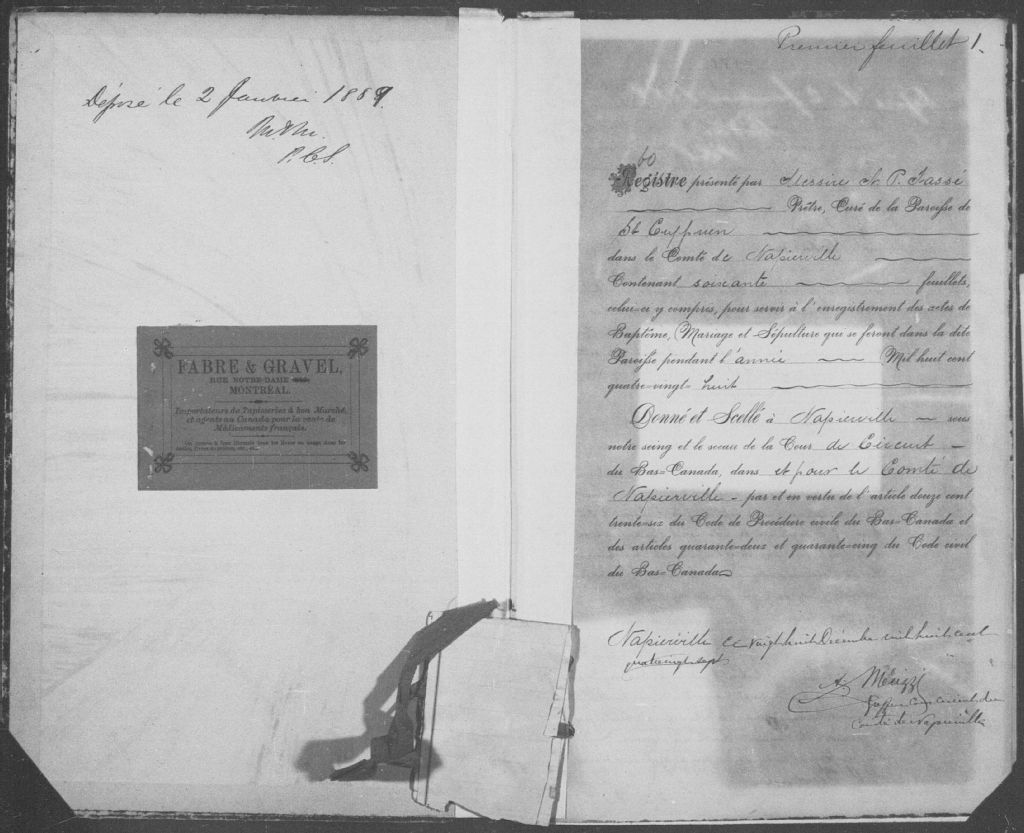 Déposé le 2 Janvier 1889.
P.C.S.
FABRE & GRAVEL,
RUE NOTRE-DAME
MONTRÉAL.
Importateurs de Tapisseries à bon Marché,
et agents au Canada pour la vente de
Médicaments français.
Premier feuillet 1.
60
Registre présenté par Messire N. P. Tassé
Prêtre, Curé de la Paroisse de
St Cyprien
dans le Comté de Napierville
Contenant soixante feuillets,
celui-ci y compris, pour servir à l'enregistrement des actes de
Baptême, Mariage et Sépulture qui se feront dans la dite
Paroisse pendant l'année Mil huit cent
quatre-vingt- huit
Donné et Scellé à Napierville sous
notre seing et le sceau de la Cour de Circuit -
du Bas-Canada, dans et pour le Comté de
Napierville - par et en vertu de l'article douze cent
trente-six du Code de Procédure civile du Bas-Canada et
des articles quarante-deux et quarante-cinq du Code civil
du Bas-Canada
Napierville ce vingt huit Décembre mil huit cent
quatre vingt sept
Comté de Napierville